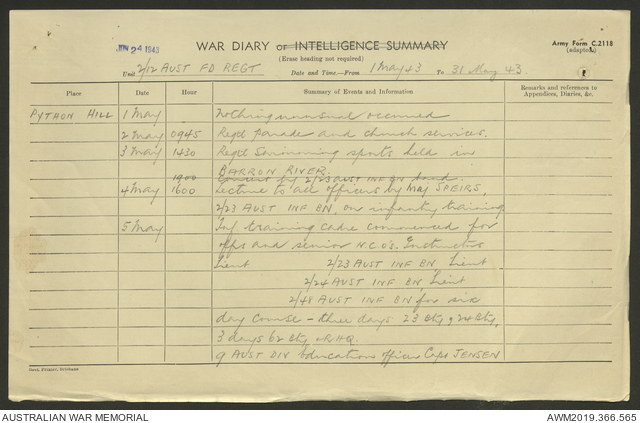 JUN 24 1943
WAR DIARY or INTELLIGENCE SUMMARY
Army Form C.2118
(adapted)
(Erase heading not required)
Unit 2/12 AUST FD REGT.
Date and Time—From 1 May 43 To 31 May 43.
Place Date Hour Summary of Events and Information Remarks and references to Appendices, Diaries, &c.
PYTHON HILL 1 May - Nothing unusual occurred
2 May 0945 Regtl parade and church services.
3 May 1430 Regtl Swimming sports held in
BARRON RIVER.
1900 Concert by 2/23 AUST INF BN band.
4 May 1600 Lecture to all officers by Maj SPEIRS,
2/23 AUST INF BN, on infantry training
5 May Inf training cadre commenced for
offrs and senior N.C.O's. Instructors
Lieut 2/23 AUST INF BN, Lieut
2/24 AUST INF BN, Lieut
2/48 AUST INF BN for six
day course - three days 23 Bty & 24 Bty,
3 days 62 Bty & RHQ.
9 AUST DIV Education officer Capt JENSEN
Govt. Printer, Brisbane
AUSTRALIAN WAR MEMORIAL
AWM2019.366.565